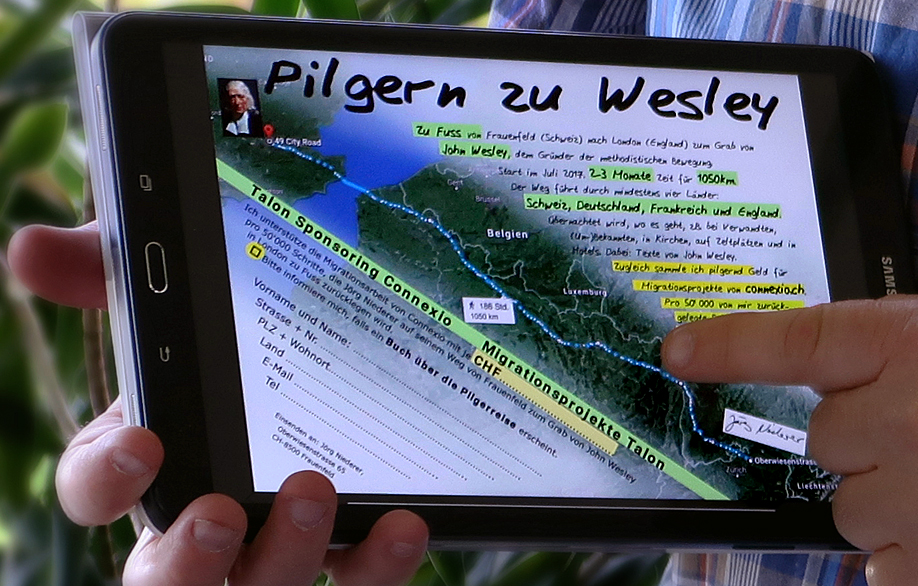 Pilgern zu Wesley
Zu Fuss von Frauenfeld (Schweiz) nach London (England) zum Grab von
John Wesley, dem Gründer der methodistischen Bewegung.
Start im Juli 2017. 2-3 Monate Zeit für 1050km
Der Weg führt durch mindestens vier Länder:
Schweiz, Deutschland, Frankreich und England.
Übernachtet wird, wo es geht, zB bei Verwandten,
(Un-)Bekannten, in Kirchen, auf Zeltplätzen und in
Hotels. Dabei: Texte von John Wesley.
Zugleich sammle ich pilgernd Geld für
Migrationsprojekte von connexio.ch.
Pro 50'000 von mir zurück-
gelegte
49 City Road
Gent
Brüssel
Belgien
Luxemburg
186 Std.
1050 km
Zürich
Oberwiesenstrasse
Liechtens
Jörg Niederer
Talon Sponsoring Connexio Migrationsprojekte Talon
Ich unterstütze die Migrationsarbeit von Connexio mit je CHF
pro 50'000 Schritte, die Jörg Niederer auf seinem Weg von Frauenfeld zum Grab von John Wesley
in London zu Fuss zurücklegen wird.
Bitte informiere mich, falls ein Buch über die Pilgerreise erscheint.
Vorname und Name:
Strasse + Nr.
PLZ + Wohnort
Land
E-Mail
Tel
Einsenden an: Jörg Niederer,
Oberwiesenstrasse 65
CH-8500 Frauenfeld
SAMSUNG